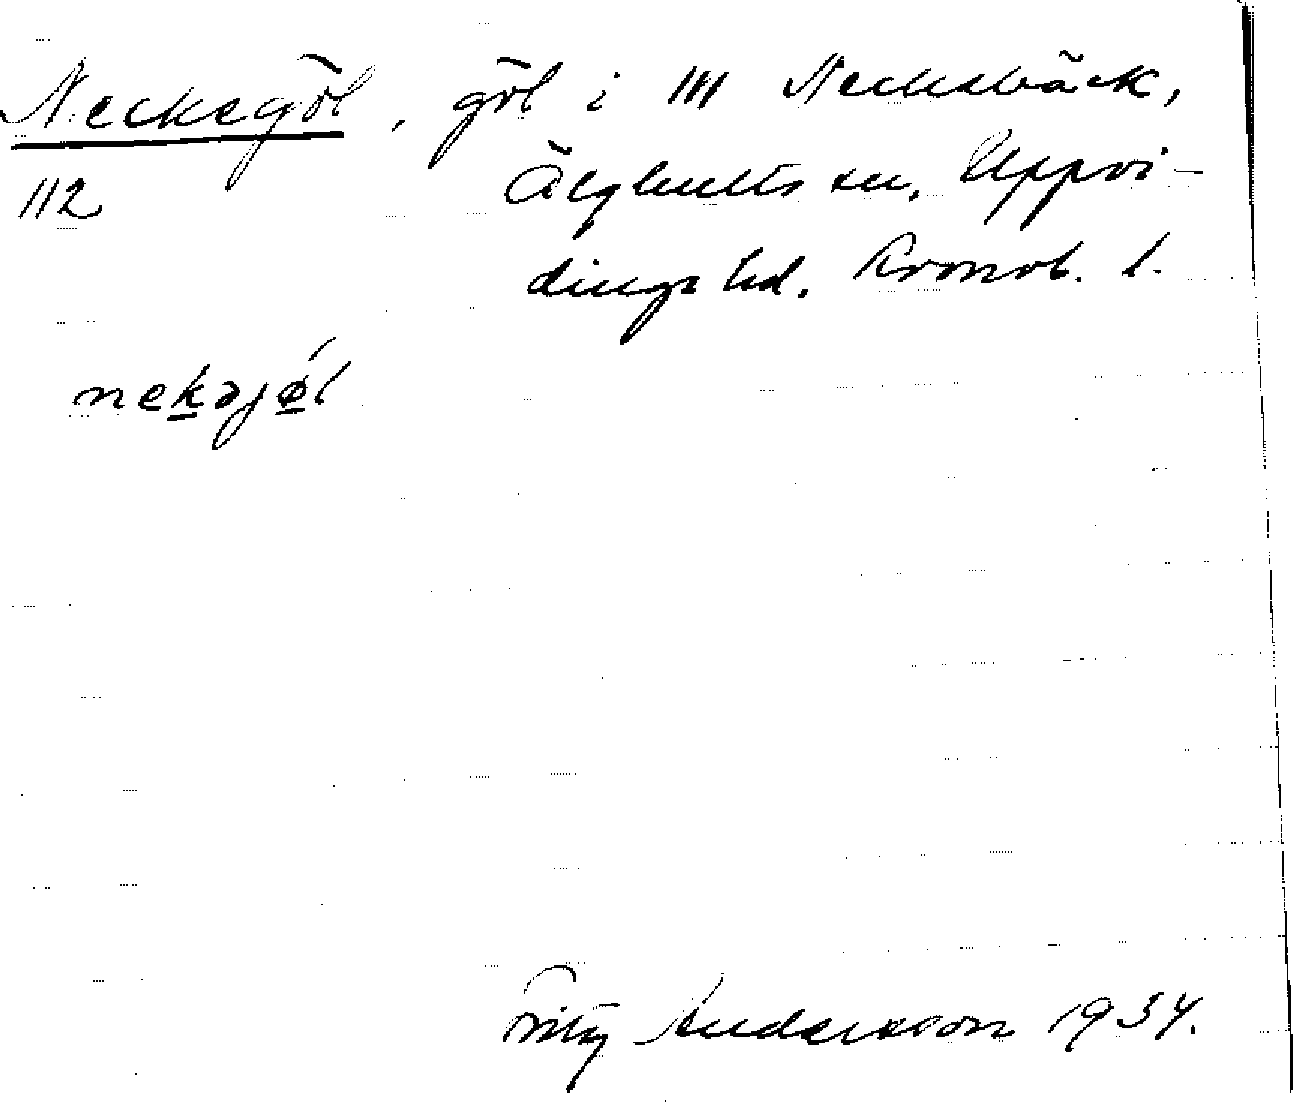 Neckegöl, göl i 111 Necksbäck,
112 Älghults sn, Uppvi-
dinge hd. Kronob. l.
nekəjøl
Fritz Andersson 1934.